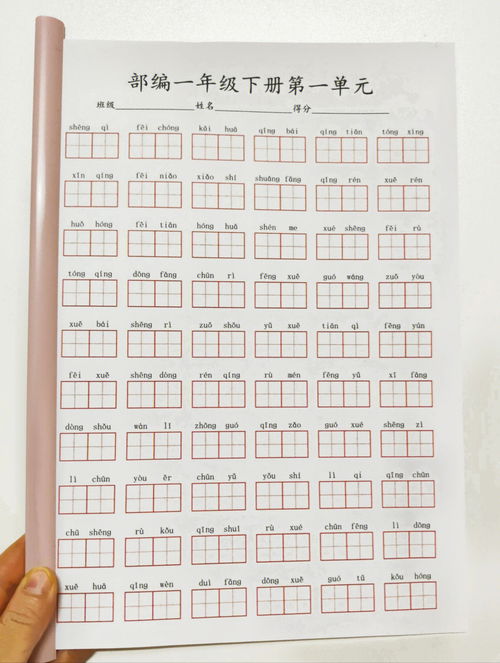 部编一年级下册第一单元
班级 姓名 得分
shēng qì fēi chóng kāi huā qīng bái qīng tiān tóng xìng
xīn qíng fēi niǎo xiǎo shí shuāng fāng qíng rén xuě rén
huǒ hóng fēi tiān hóng huā shén me xué shēng fēi rù
tóng qíng dōng fāng chūn rì fēng xuě guó wáng zuǒ yòu
xuě bái shēng rì zuǒ shǒu yǔ xuě tiān qì fēng yún
fēi xuě shēng dòng rén qíng rù mén fēng yǔ xī fāng
dòng shǒu wàn lǐ zhōng guó qīng zǎo guó xué shēng zì
lì chūn yòu ěr chūn yǔ yǒu shí lì qì qīng chūn
chū shēng rù kǒu qīng shuǐ rù xué chūn fēng lì dōng
xuě huā qǐng wèn duì fāng dōng xuě guó tǔ kǒu hóng